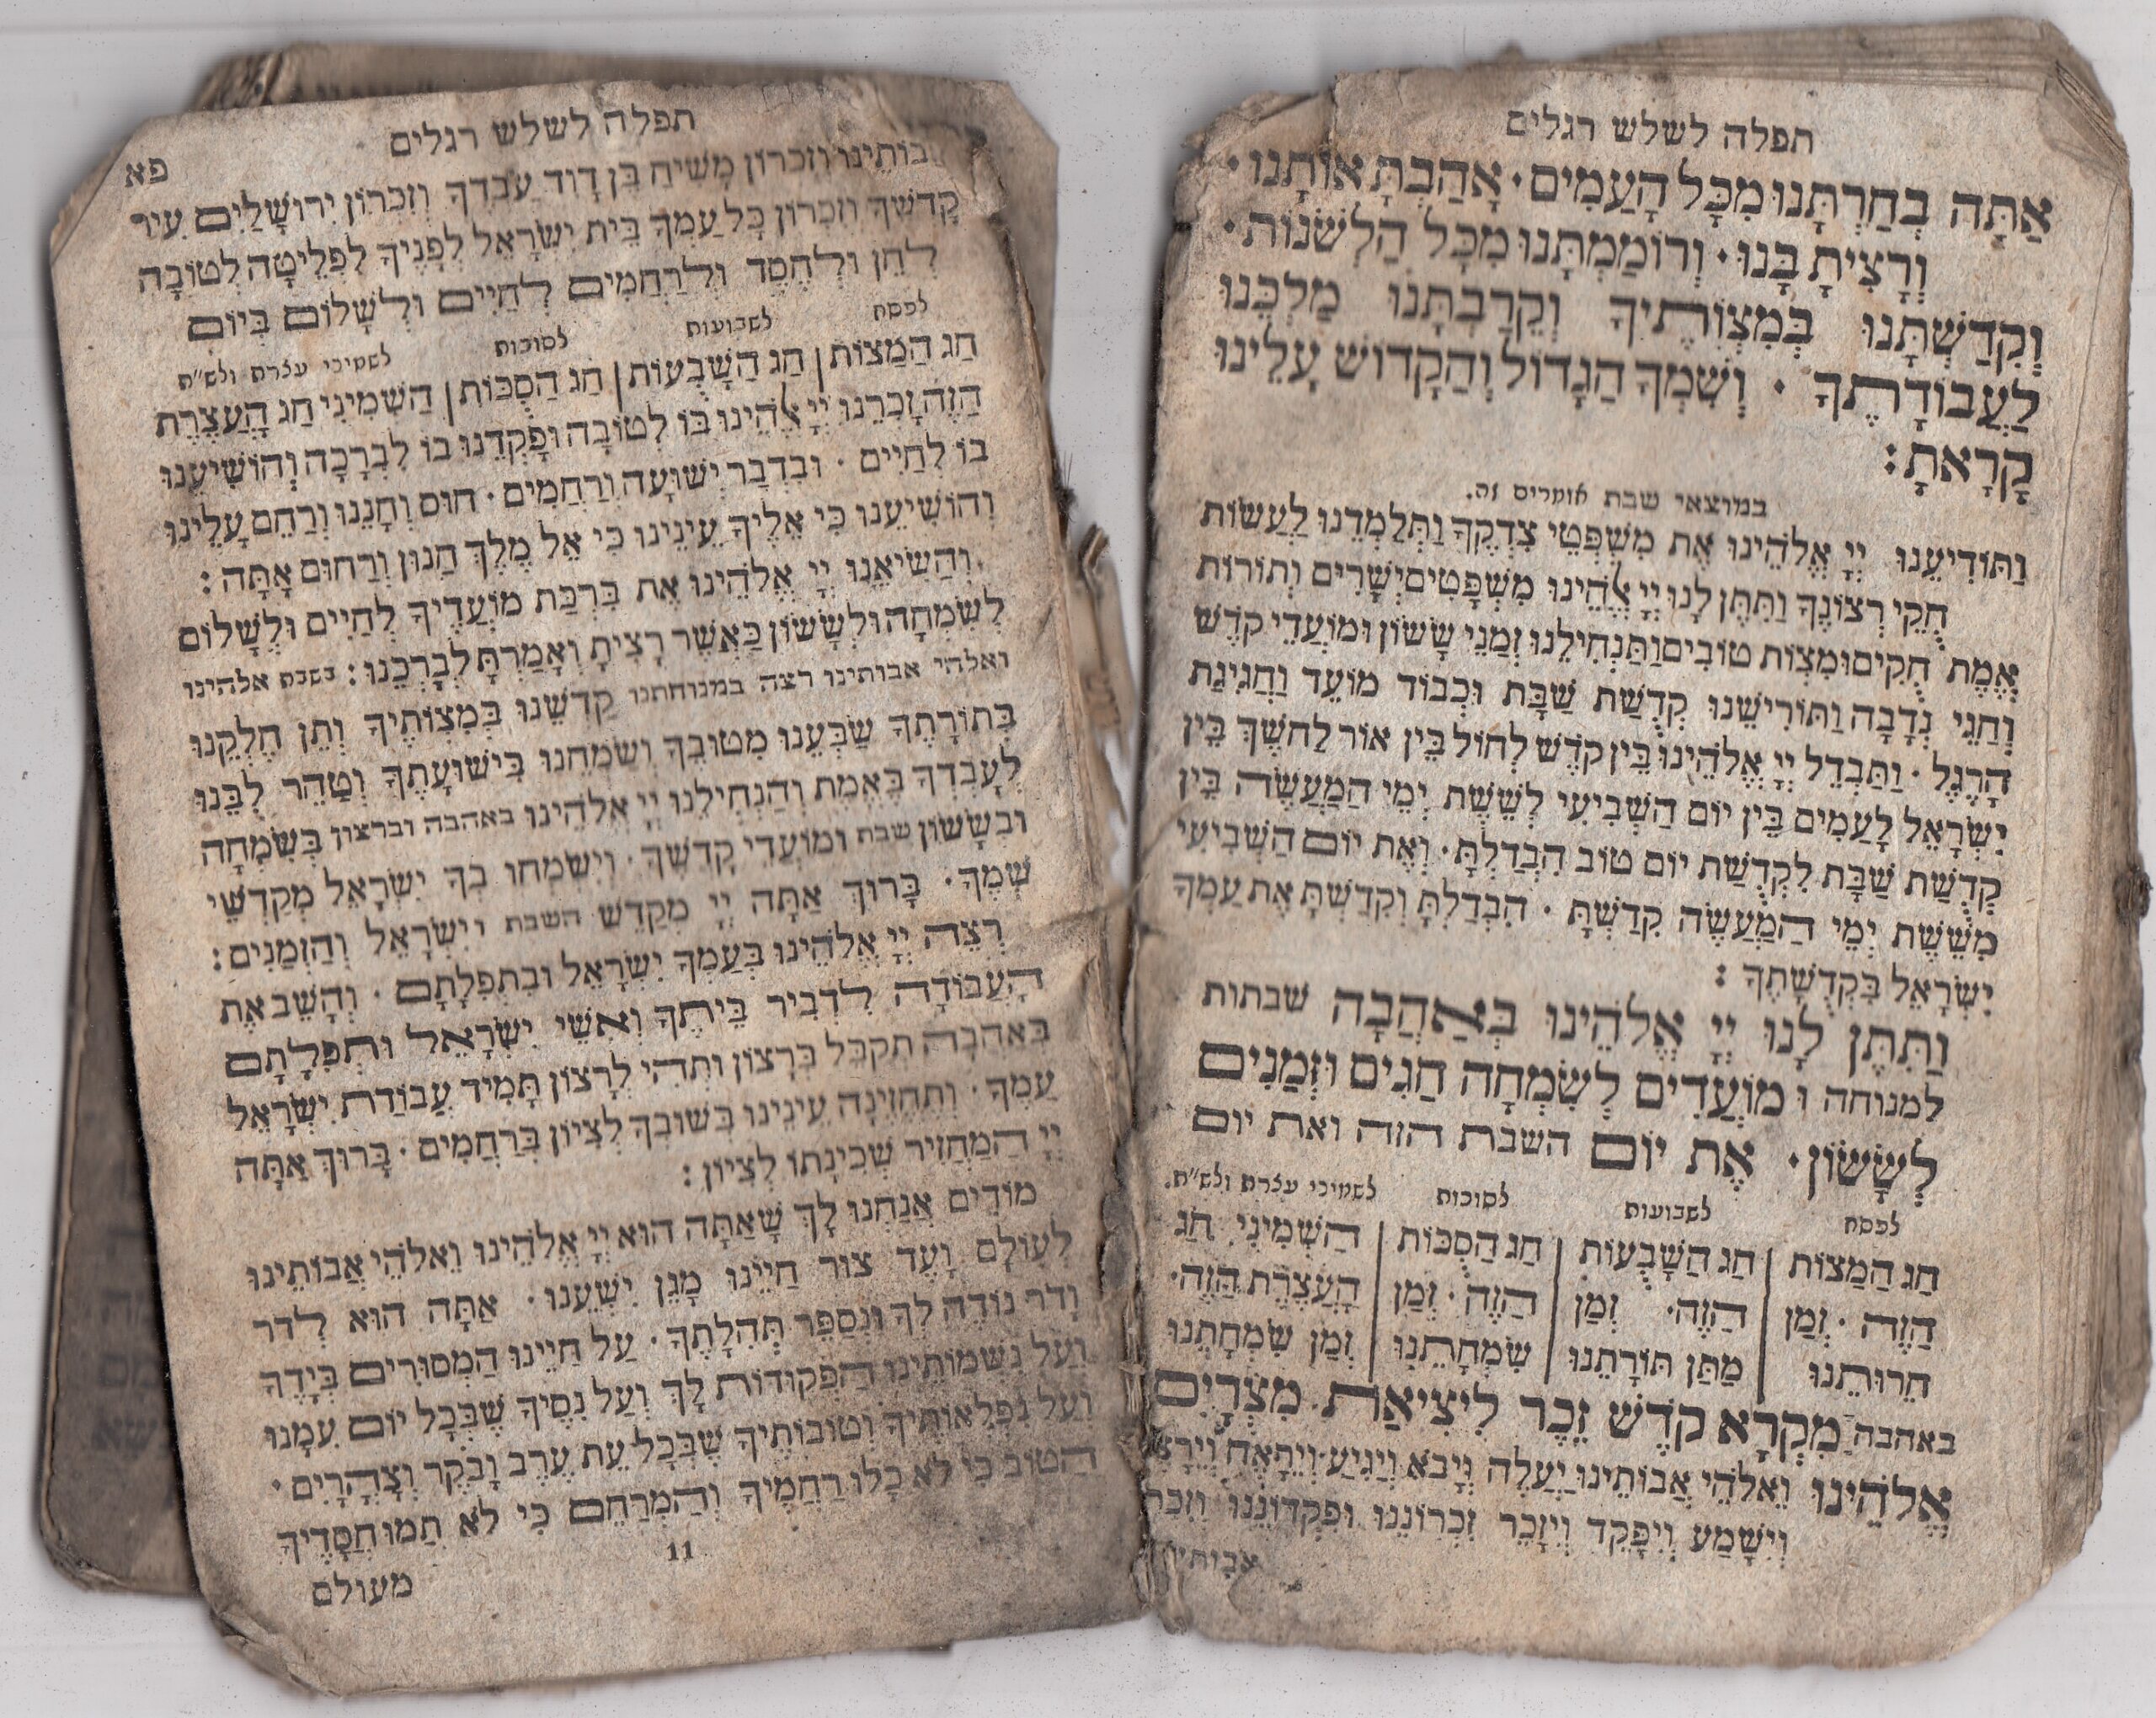 תפלה לשלש רגלים
אַתָּה בְחַרְתָּנוּ מִכָּל הָעַמִּים · אָהַבְתָּ אוֹתָנוּ ·
וְרָצִיתָ בָּנוּ · וְרוֹמַמְתָּנוּ מִכָּל הַלְשׁנוֹת ·
וְקִדַשְׁתָּנוּ בְּמִצְוֹתֶיךָ וְקֵרַבְתָּנוּ מַלְכֵּנוּ
לַעֲבוֹדָתֶךָ · וְשִׁמְךָ הַגָדוֹל וְהַקָדוֹשׁ עָלֵינוּ
קָרָאתָ :
במוצאי שבת אומרים זה.
וַתּוֹדִיעֵנוּ יְיָ אֱלֹהֵינוּ אֶת מִשְׁפְּטֵי צִדְקֶךָ וַתְּלַמְּדֵנוּ לַעֲשׂוֹת
חֻקֵי רְצוֹנֶךָ וַתִּתֶּן לָנוּ יְיָ אֱלֹהֵינוּ מִשְׁפָּטִים יְשָׁרִים וְתוֹרוֹת
אֱמֶת חֻקִים וּמִצְוֹת טוֹבִים וַתַּנְחִילֵנוּ זְמַנֵי שָׂשׂוֹן וּמוֹעֲדֵי קֹדֶשׁ
וְחַגֵּי נְדָבָה וַתּוֹרִישֵׁנוּ קְדֻשַּׁת שַׁבָּת וּכְבוֹד מוֹעֵד וַחֲגִיגַת
הָרֶגֶל · וַתַּבְדֵל יְיָ אֱלֹהֵינוּ בֵּין קֹדֶשׁ לְחוֹל בֵּין אוֹר לַחשֶׁךְ בֵּין
יִשְׂרָאֵל לָעַמִּים בֵּין יוֹם הַשְּׁבִיעִי לְשֵׁשֶׁת יְמֵי הַמַּעֲשֶׂה בֵּין
קְדֻשַּׁת שַׁבָּת לִקְדֻשַּׁת יוֹם טוֹב הִבְדַּלְתָּ · וְאֶת יוֹם הַשְּׁבִיעִי
מִשֵּׁשֶׁת יְמֵי הַמַּעֲשֶׂה קִדַּשְׁתָּ · הִבְדַּלְתָּ וְקִדַּשְׁתָּ אֶת עַמְּךָ
יִשְׂרָאֵל בִּקְדֻשָּׁתֶךָ :
וַתִּתֶּן לָנוּ יְיָ אֱלֹהֵינוּ בְּאַהֲבָה שבתות
למנוחה וּ מוֹעֲדִים לְשִׂמְחָה חַגִים וּזְמַנִים
לְשָׂשׂוֹן · אֶת יוֹם השבת הזה ואת יום
לפסח לשבועות לסוכות לשמיני עצרת ולש״ת.
חַג הַמַּצּוֹת | חַג הַשָּׁבֻעוֹת | חַג הַסֻּכּוֹת | הַשְּׁמִינִי חַג
הַזֶּה · זְמַן | הַזֶּה · זְמַן | הַזֶּה · זְמַן | הָעֲצֶרֶת הַזֶּה ·
חֵרוּתֵנוּ | מַתַּן תּוֹרָתֵנוּ | שִׂמְחָתֵנוּ | זְמַן שִׂמְחָתֵנוּ
באהבה מִקְרָא קֹדֶשׁ זֵכֶר לִיצִיאַת מִצְרָיִם
אֱלֹהֵינוּ וֵאלֹהֵי אֲבוֹתֵינוּ יַעֲלֶה וְיָבֹא וְיַגִּיעַ וְיֵרָאֶה
וְיִשָּׁמַע וְיִפָּקֵד וְיִזָּכֵר זִכְרוֹנֵנוּ וּפִקְדוֹנֵנוּ
תפלה לשלש רגלים
פא
וְזִכְרוֹן מָשִׁיחַ בֶּן דָּוִד עַבְדֶּךָ וְזִכְרוֹן יְרוּשָׁלַיִם עִיר
קָדְשֶׁךָ וְזִכְרוֹן כָּל עַמְּךָ בֵּית יִשְׂרָאֵל לְפָנֶיךָ לִפְלֵיטָה לְטוֹבָה
לְחֵן וּלְחֶסֶד וּלְרַחֲמִים לְחַיִּים וּלְשָׁלוֹם בְּיוֹם
לפסח לשבועות לסוכות לשמיני עצרת ולש״ת
חַג הַמַּצּוֹת | חַג הַשָּׁבֻעוֹת | חַג הַסֻּכּוֹת | הַשְּׁמִינִי חַג הָעֲצֶרֶת
הַזֶּה זָכְרֵנוּ יְיָ אֱלֹהֵינוּ בּוֹ לְטוֹבָה וּפָקְדֵנוּ בוֹ לִבְרָכָה וְהוֹשִׁיעֵנוּ
בוֹ לְחַיִּים · וּבִדְבַר יְשׁוּעָה וְרַחֲמִים · חוּס וְחָנֵּנוּ וְרַחֵם עָלֵינוּ
וְהוֹשִׁיעֵנוּ כִּי אֵלֶיךָ עֵינֵינוּ כִּי אֵל מֶלֶךְ חַנּוּן וְרַחוּם אָתָּה :
וְהַשִּׂיאֵנוּ יְיָ אֱלֹהֵינוּ אֶת בִּרְכַּת מוֹעֲדֶיךָ לְחַיִּים וּלְשָׁלוֹם
לְשִׂמְחָה וּלְשָׂשׂוֹן כַּאֲשֶׁר רָצִיתָ וְאָמַרְתָּ לְבָרְכֵנוּ : בשבת אלהינו
ואלהי אבותינו רצה במנוחתנו קַדְּשֵׁנוּ בְּמִצְוֹתֶיךָ וְתֵן חֶלְקֵנוּ
בְּתוֹרָתֶךָ שַׂבְּעֵנוּ מִטּוּבֶךָ וְשַׂמְּחֵנוּ בִּישׁוּעָתֶךָ וְטַהֵר לִבֵּנוּ
לְעָבְדְּךָ בֶּאֱמֶת וְהַנְחִילֵנוּ יְיָ אֱלֹהֵינוּ באהבה וברצון בְּשִׂמְחָה
וּבְשָׂשׂוֹן שבת וּמוֹעֲדֵי קָדְשֶׁךָ · וְיִשְׂמְחוּ בְךָ יִשְׂרָאֵל מְקַדְּשֵׁי
שְׁמֶךָ · בָּרוּךְ אַתָּה יְיָ מְקַדֵּשׁ השבת וְ יִשְׂרָאֵל וְהַזְּמַנִּים :
רְצֵה יְיָ אֱלֹהֵינוּ בְּעַמְּךָ יִשְׂרָאֵל וּבִתְפִלָּתָם · וְהָשֵׁב אֶת
הָעֲבוֹדָה לִדְבִיר בֵּיתֶךָ וְאִשֵּׁי יִשְׂרָאֵל וּתְפִלָּתָם
בְּאַהֲבָה תְקַבֵּל בְּרָצוֹן וּתְהִי לְרָצוֹן תָּמִיד עֲבוֹדַת יִשְׂרָאֵל
עַמֶּךָ · וְתֶחֱזֶינָה עֵינֵינוּ בְּשׁוּבְךָ לְצִיּוֹן בְּרַחֲמִים · בָּרוּךְ אַתָּה
יְיָ הַמַּחֲזִיר שְׁכִינָתוֹ לְצִיּוֹן :
מוֹדִים אֲנַחְנוּ לָךְ שָׁאַתָּה הוּא יְיָ אֱלֹהֵינוּ וֵאלֹהֵי אֲבוֹתֵינוּ
לְעוֹלָם וָעֶד צוּר חַיֵּינוּ מָגֵן יִשְׁעֵנוּ · אַתָּה הוּא לְדֹר
וָדֹר נוֹדֶה לְּךָ וּנְסַפֵּר תְּהִלָּתֶךָ · עַל חַיֵּינוּ הַמְּסוּרִים בְּיָדֶךָ
וְעַל נִשְׁמוֹתֵינוּ הַפְּקוּדוֹת לָךְ וְעַל נִסֶּיךָ שֶׁבְּכָל יוֹם עִמָּנוּ
וְעַל נִפְלְאוֹתֶיךָ וְטוֹבוֹתֶיךָ שֶׁבְּכָל עֵת עֶרֶב וָבֹקֶר וְצָהֳרָיִם ·
הַטּוֹב כִּי לֹא כָלוּ רַחֲמֶיךָ וְהַמְרַחֵם כִּי לֹא תַמּוּ חֲסָדֶיךָ
11
מעולם